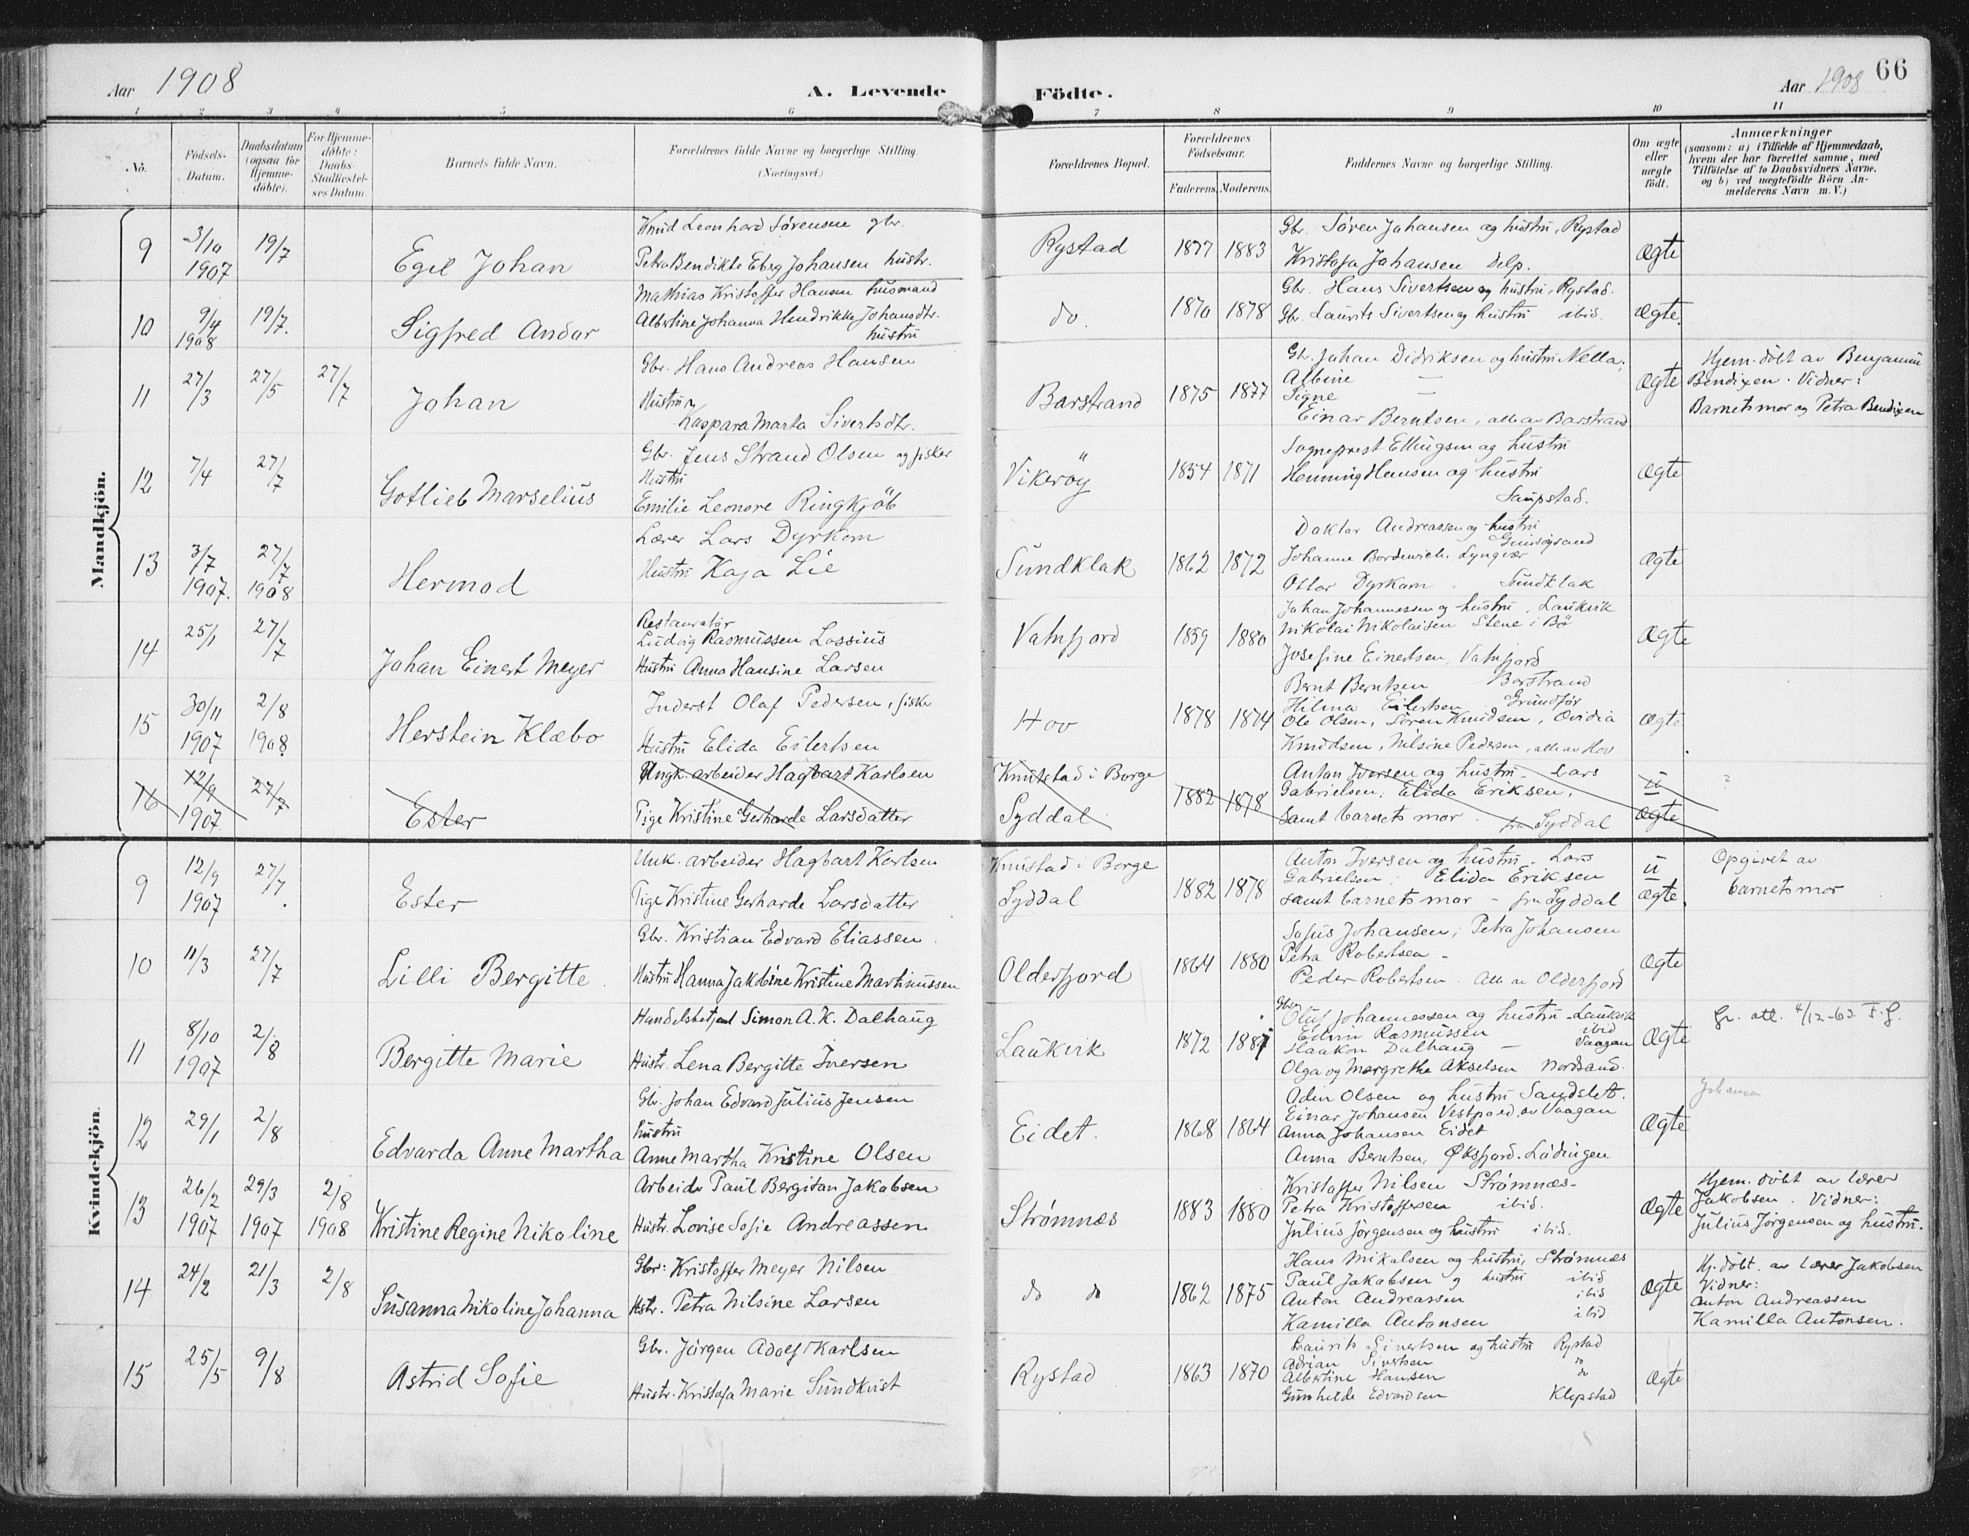 Aar 1908
A. Levende Födte.
Aar 1908
66
1 2 3 4 5 6 7 8 9 10 11
No.
Födsels-Datum.
Daabsdatum (ogsaa for Hjemme-döbte).
For Hjemme-döbte: Daabs-Stadfæstelses Datum.
Barnets fulde Navn.
Forældrenes fulde Navne og borgerlige Stilling.
(Næringsvei.)
Forældrenes Bopæl.
Forældrenes Födselsaar.
Faderens. Moderens.
Faddernes Navne og borgerlige Stilling.
Om ægte eller uægte födt.
Anmærkninger
(saasom: a) i Tilfælde af Hjemmedaab, hvem der har forrettet samme, med Tilföielse af to Daabsvidners Navne, og b) ved uægtefödte Börn Anmelderens Navn m. V.)
Mandkjön.
9 3/10 1907 19/7 Egil Johan
Knud Leonhard Sørensen gbr.
Petra Bendikte Ebrg Johansen hustr.
Rystad 1877 1883
Gbr. Søren Johansen og hustru, Rystad
Kristofa Johansen Delp.
Ægte
10 9/4 1908 19/7. Sigfred Andor
Mathias Kristoffer Hansen husmand
Albertine Johanna Hendrikke Johansdtr.
hustru
do. 1870 1878
Gbr. Hans Sivertsen og hustru, Rystad.
Gbr. Laurits Sivertsen og hustru ibid.
Ægte.
11 27/3 27/5 27/7 Johan
Gbr. Hans Andreas Hansen
Hustru
Kaspara Marta Sivertsdtr.
Barstrand 1875 1877
Gbr. Johan Didriksen og hustru Nella,
Albine —
Signe
Einar Berntsen, alle av Barstrand
Ægte
Hjem. döbt av Benjamin
Bendixen. Vidner:
Barnets mor og Petra Bendixen
12 7/4 27/7 Gotlieb Marselius
Gbr. Jens Strand Olsen og fisker
Hustru
Emilie Leonore Ringkjöb
Vikerøy 1854 1871
Sogneprest Ellingsen og hustru
Henning Hansen og hustru
Saupstad.
Ægte
13 3/7 1907. 27/7 1908 Hermod
Lærer Lars Dyrkorn
Hustru Kaja Lie
Sundklak 1862 1872
Doktor Andreassen og hustru
Johanne Bordewich. Lyngvær
Ottar Dyrkorn. Sundklak
Ægte
14 25/1 27/7 Johan Einert Meyer
Restauratør
Ludvig Rasmussen Lossius
Hustru Anna Hansine Larsen
Vatnfjord 1859 1880
Johan Johannessen og hustru, Laukvik
Nikolai Nikolaisen Stene i Bö
Josefine Einertsen, Vatnfjord
Ægte
15 30/11 1907 2/8 1908. Herstein Klæbo
Inderst Olaf Pedersen, fisker
Hustru Elida Eilertsen
Hov 1878 1874
Bernt Berntsen Barstrand
Hilma Eilertsen Grundför
Ole Olsen, Sören Knudsen, Ovidia
Knudsen, Nilsine Pedersen, alle av Hov
Ægte
16 12/9 1907 27/7 Ester
Ungk. arbeider Hagbart Karlsen
Pige Kristine Gerharde Larsdatter
Knutstad i Borge
Syddal 1882 1878
Anton Iversen og hustru. Lars
Gabrielsen, Elida Eriksen,
samt barnets mor. fra Syddal
u ægte
?
Kvindekjön.
9 12/9 1907 27/7. Ester
Unk. arbeider Hagbart Karlsen
Pige Kristine Gerharde Larsdatter
Knustad i Borge
Syddal 1882 1878
Anton Iversen og hustru. Lars
Gabrielsen; Elida Eriksen
samt barnets mor - fra Syddal
u ægte.
Opgivet av
barnets mor
10 11/3 27/7 Lilli Bergitte.
Gbr. Kristian Edvard Eliassen.
Hustru Hanna Jakobine Kristine Martinussen
Olderfjord 1864 1880
Sofus Johansen; Petra Johansen
Petra Robertsen -
Peder Robertsen. alle av Olderfjord
Ægte
11 8/10 1907 2/8 Bergitte Marie
Handelsbetjent Simon A. K. Dalhaug
Hustr. Lena Bergitte Iversen
Laukvik 1872 1887
Gbr. Oluf Johannessen og hustru Laukvik
Edvin Rasmussen ibid
Haakon Dalhaug — Vaagan
Olga og Margrethe Akselsen Nordsand.
Ægte
Gr. att. 4/12-63. F.G.
12 29/1 2/8 Edvarda Anne Martha
Gbr. Johan Edvard Julius Jensen
hustru
Anne Martha Kristine Olsen
Eidet. 1868 1864
Adin Olsen og hustru Sandslet.
Einar Johansen Vestpoed. av Vaagan
Anna Johansen Eidet
Anna Berntsen, Øksfjord. Lödingen
Ægte
Johansen
13 26/2 1907 29/3 1907 2/8 1908 Kristine Regine Nikoline
Arbeider Paul Bergitan Jakobsen
Hustr. Lovise Sofie Andreassen
Strømnæs 1883 1880
Kristoffer Nilsen Strømnæs-
Petra Kristoffersen ibid.
Julius Jørgensen og hustru ibid.
Ægte
Hjem. döbt av lærer
Jakobsen. Vidner:
Julius Jørgensen og hustru.
14 24/2 21/3 2/8 Susanna Nikoline Johanna
Gbr: Kristoffer Meyer Nilsen
Hstr. Petra Nilsine Larsen
do do 1862 1875
Hans Mikalsen og hustru, Strømnæs
Paul Jakobsen og hustru ibid
Anton Andreassen ibid
Kamilla Antonsen ibid
Ægte
Hj. döbt. av lærer Jakobsen
Vidner:
Anton Andreassen
Kamilla Antonsen.
15 25/5 9/8 Astrid Sofie
Gbr. Jürgen Adolf Karlsen
Hustr. Kristofa Marie Sundkvist
Rystad 1863 1870
Laurits Sivertsen og hustru Rystad
Adrian Sivertsen do
Albertine Hansen do
Gunhilde Edvardsen Klepstad
Ægte